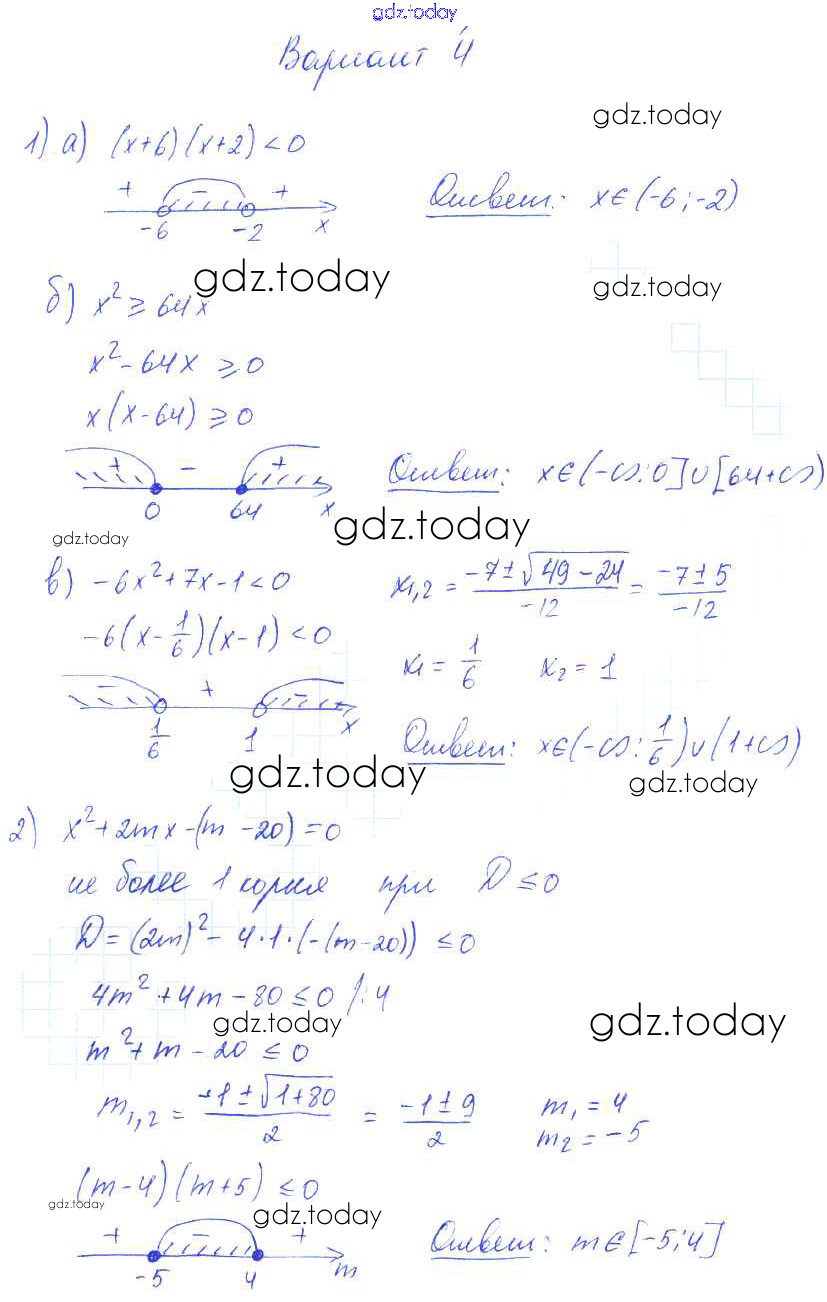 gdz.today
Вариант 4
gdz.today
1) а) (x+6)(x+2)<0
+ - +
-6 -2 x
Ответ: x∈(-6;-2)
gdz.today
gdz.today
б) x²≥64x
x²-64x ≥0
x(x-64) ≥0
+ - +
0 64 x
Ответ: x∈(-∞;0]∪[64+∞)
gdz.today
gdz.today
в) -6x²+7x-1<0
x₁,₂ = (-7±√(49-24))/(-12) = (-7±5)/(-12)
-6(x-1/6)(x-1)<0
x₁ = 1/6 x₂ = 1
- + -
1/6 1 x
Ответ: x∈(-∞;1/6)∪(1+∞)
gdz.today
gdz.today
2) x²+2mx-(m-20)=0
не более 1 корня при D≤0
D=(2m)²-4·1·(-(m-20)) ≤0
4m²+4m-80≤0 /:4
gdz.today
gdz.today
m²+m-20 ≤0
m₁,₂ = (-1±√(1+80))/2 = (-1±9)/2
m₁ = 4
m₂ = -5
(m-4)(m+5) ≤0
gdz.today
gdz.today
+ - +
-5 4 m
Ответ: m∈[-5;4]